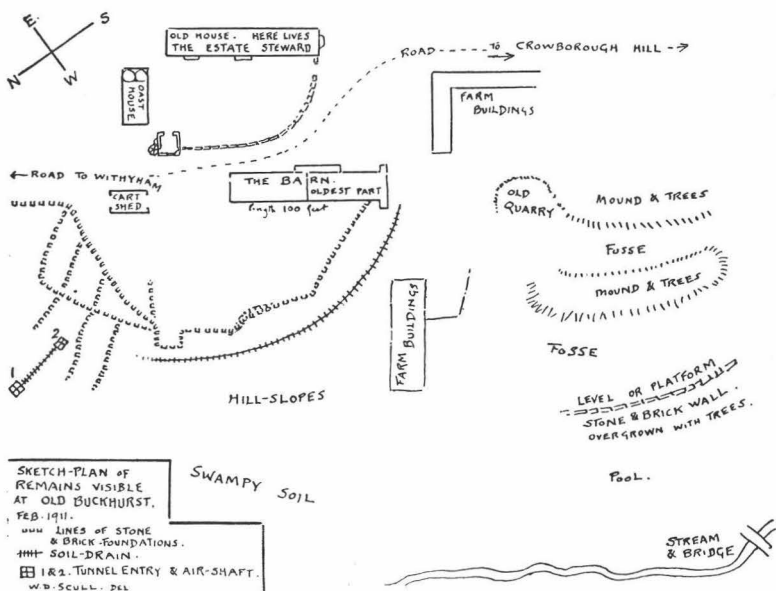 E.
S
N
W
OLD HOUSE. HERE LIVES
THE ESTATE STEWARD
OAST
HOUSE
ROAD TO CROWBOROUGH HILL
FARM
BUILDINGS
ROAD TO WITHYHAM
CART
SHED
THE BARN.
OLDEST PART
length 100 feet
OLD
QUARRY
MOUND & TREES
FUSSE
MOUND & TREES
FOSSE
FARM BUILDINGS
1
2
HILL-SLOPES
LEVEL OR PLATFORM
STONE & BRICK WALL.
OVERGROWN WITH TREES.
POOL.
SWAMPY SOIL
STREAM
& BRIDGE
SKETCH-PLAN OF
REMAINS VISIBLE
AT OLD BUCKHURST.
FEB. 1911.
LINES OF STONE
& BRICK-FOUNDATIONS.
SOIL-DRAIN.
1 & 2. TUNNEL ENTRY & AIR-SHAFT.
W.D. SCULL. DEL